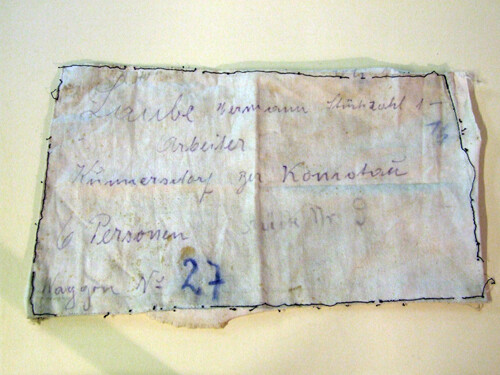 Laube Hermann Stückzahl 1-
Arbeiter
Kunnersdorf ger Komotau
6 Personen Nr. 9
Waggon No 27